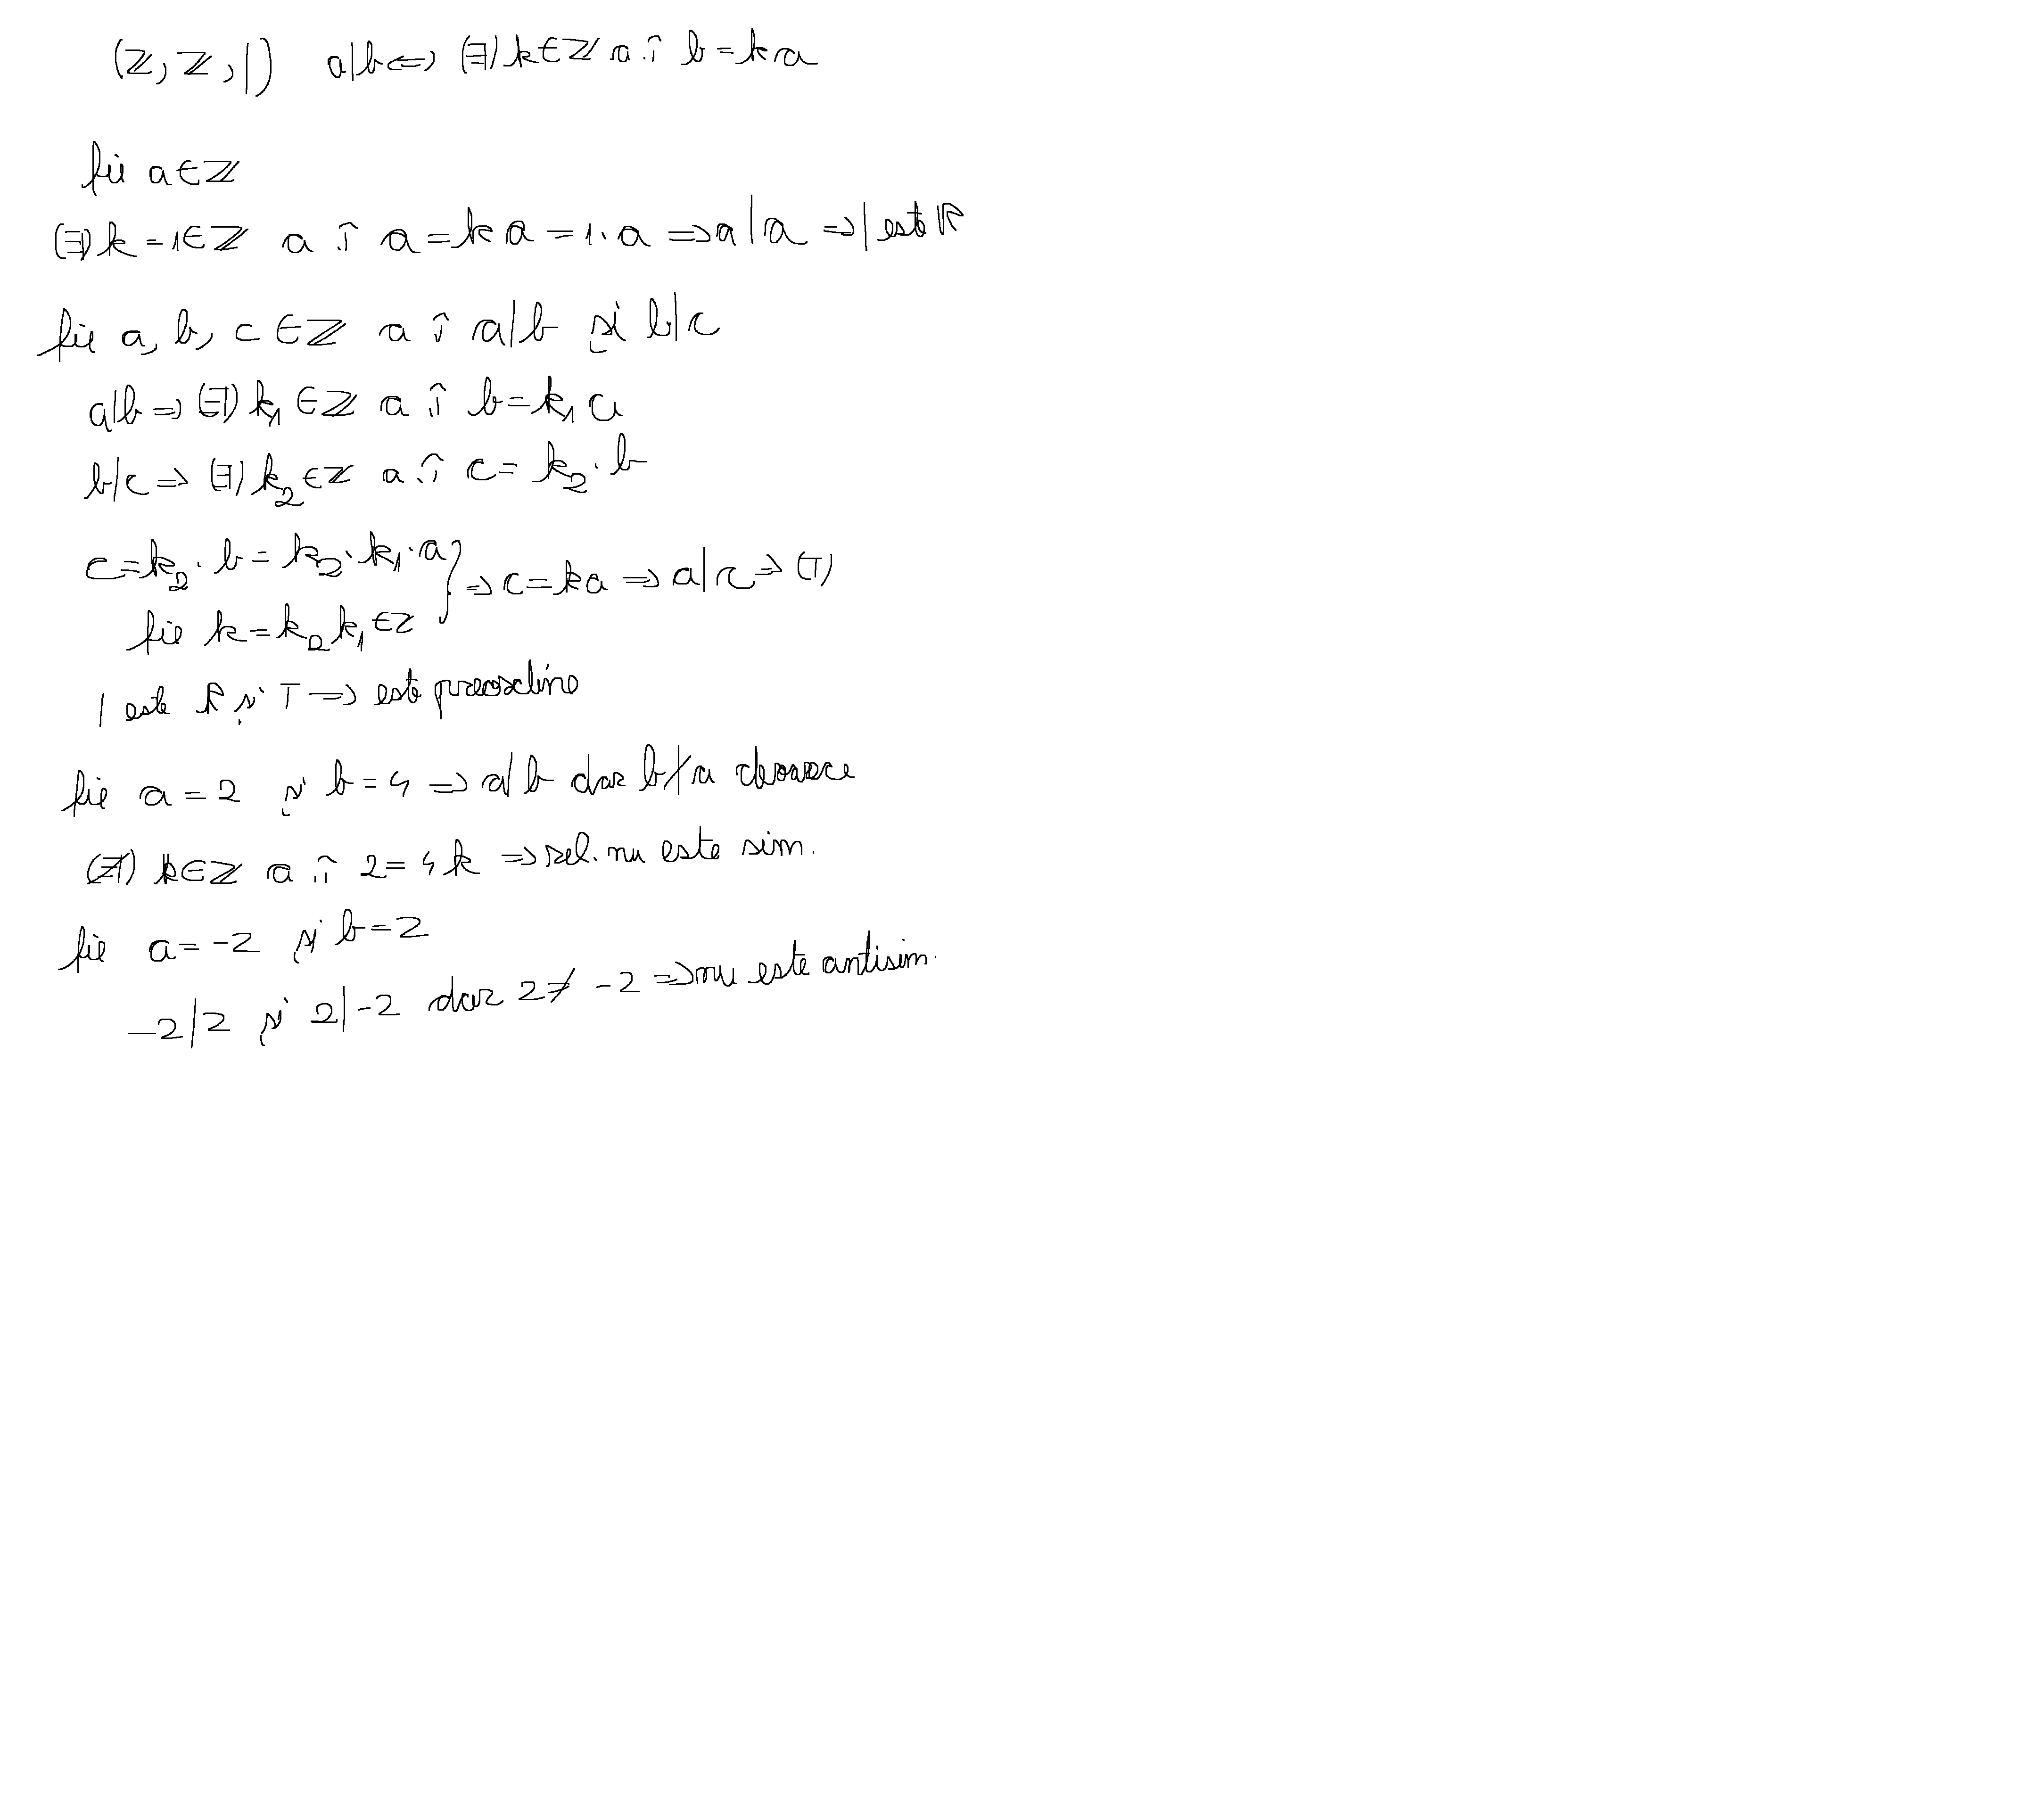 (ℤ, ℤ, |) a|b ⇔ (∃) k∈ℤ a.î b=ka
fie a∈ℤ
(∃) k=1∈ℤ a î a=ka=1·a ⇒ a|a ⇒ | este R
fie a, b, c ∈ℤ a î a|b și b|c
a|b ⇒ (∃) k₁ ∈ℤ a î b=k₁a
b|c ⇒ (∃) k₂∈ℤ a.î c= k₂·b
c=k₂·b=k₂·k₁·a } ⇒ c=ka ⇒ a|c ⇒ (T)
fie k=k₂k₁∈ℤ
| este R și T ⇒ este preordine
fie a=2 și b=4 ⇒ a|b dar b∤a deoarece
(∄) k∈ℤ a î 2=4k ⇒ rel. nu este sim.
fie a=-2 și b=2
-2|2 și 2|-2 dar 2≠-2 ⇒ nu este antisim.